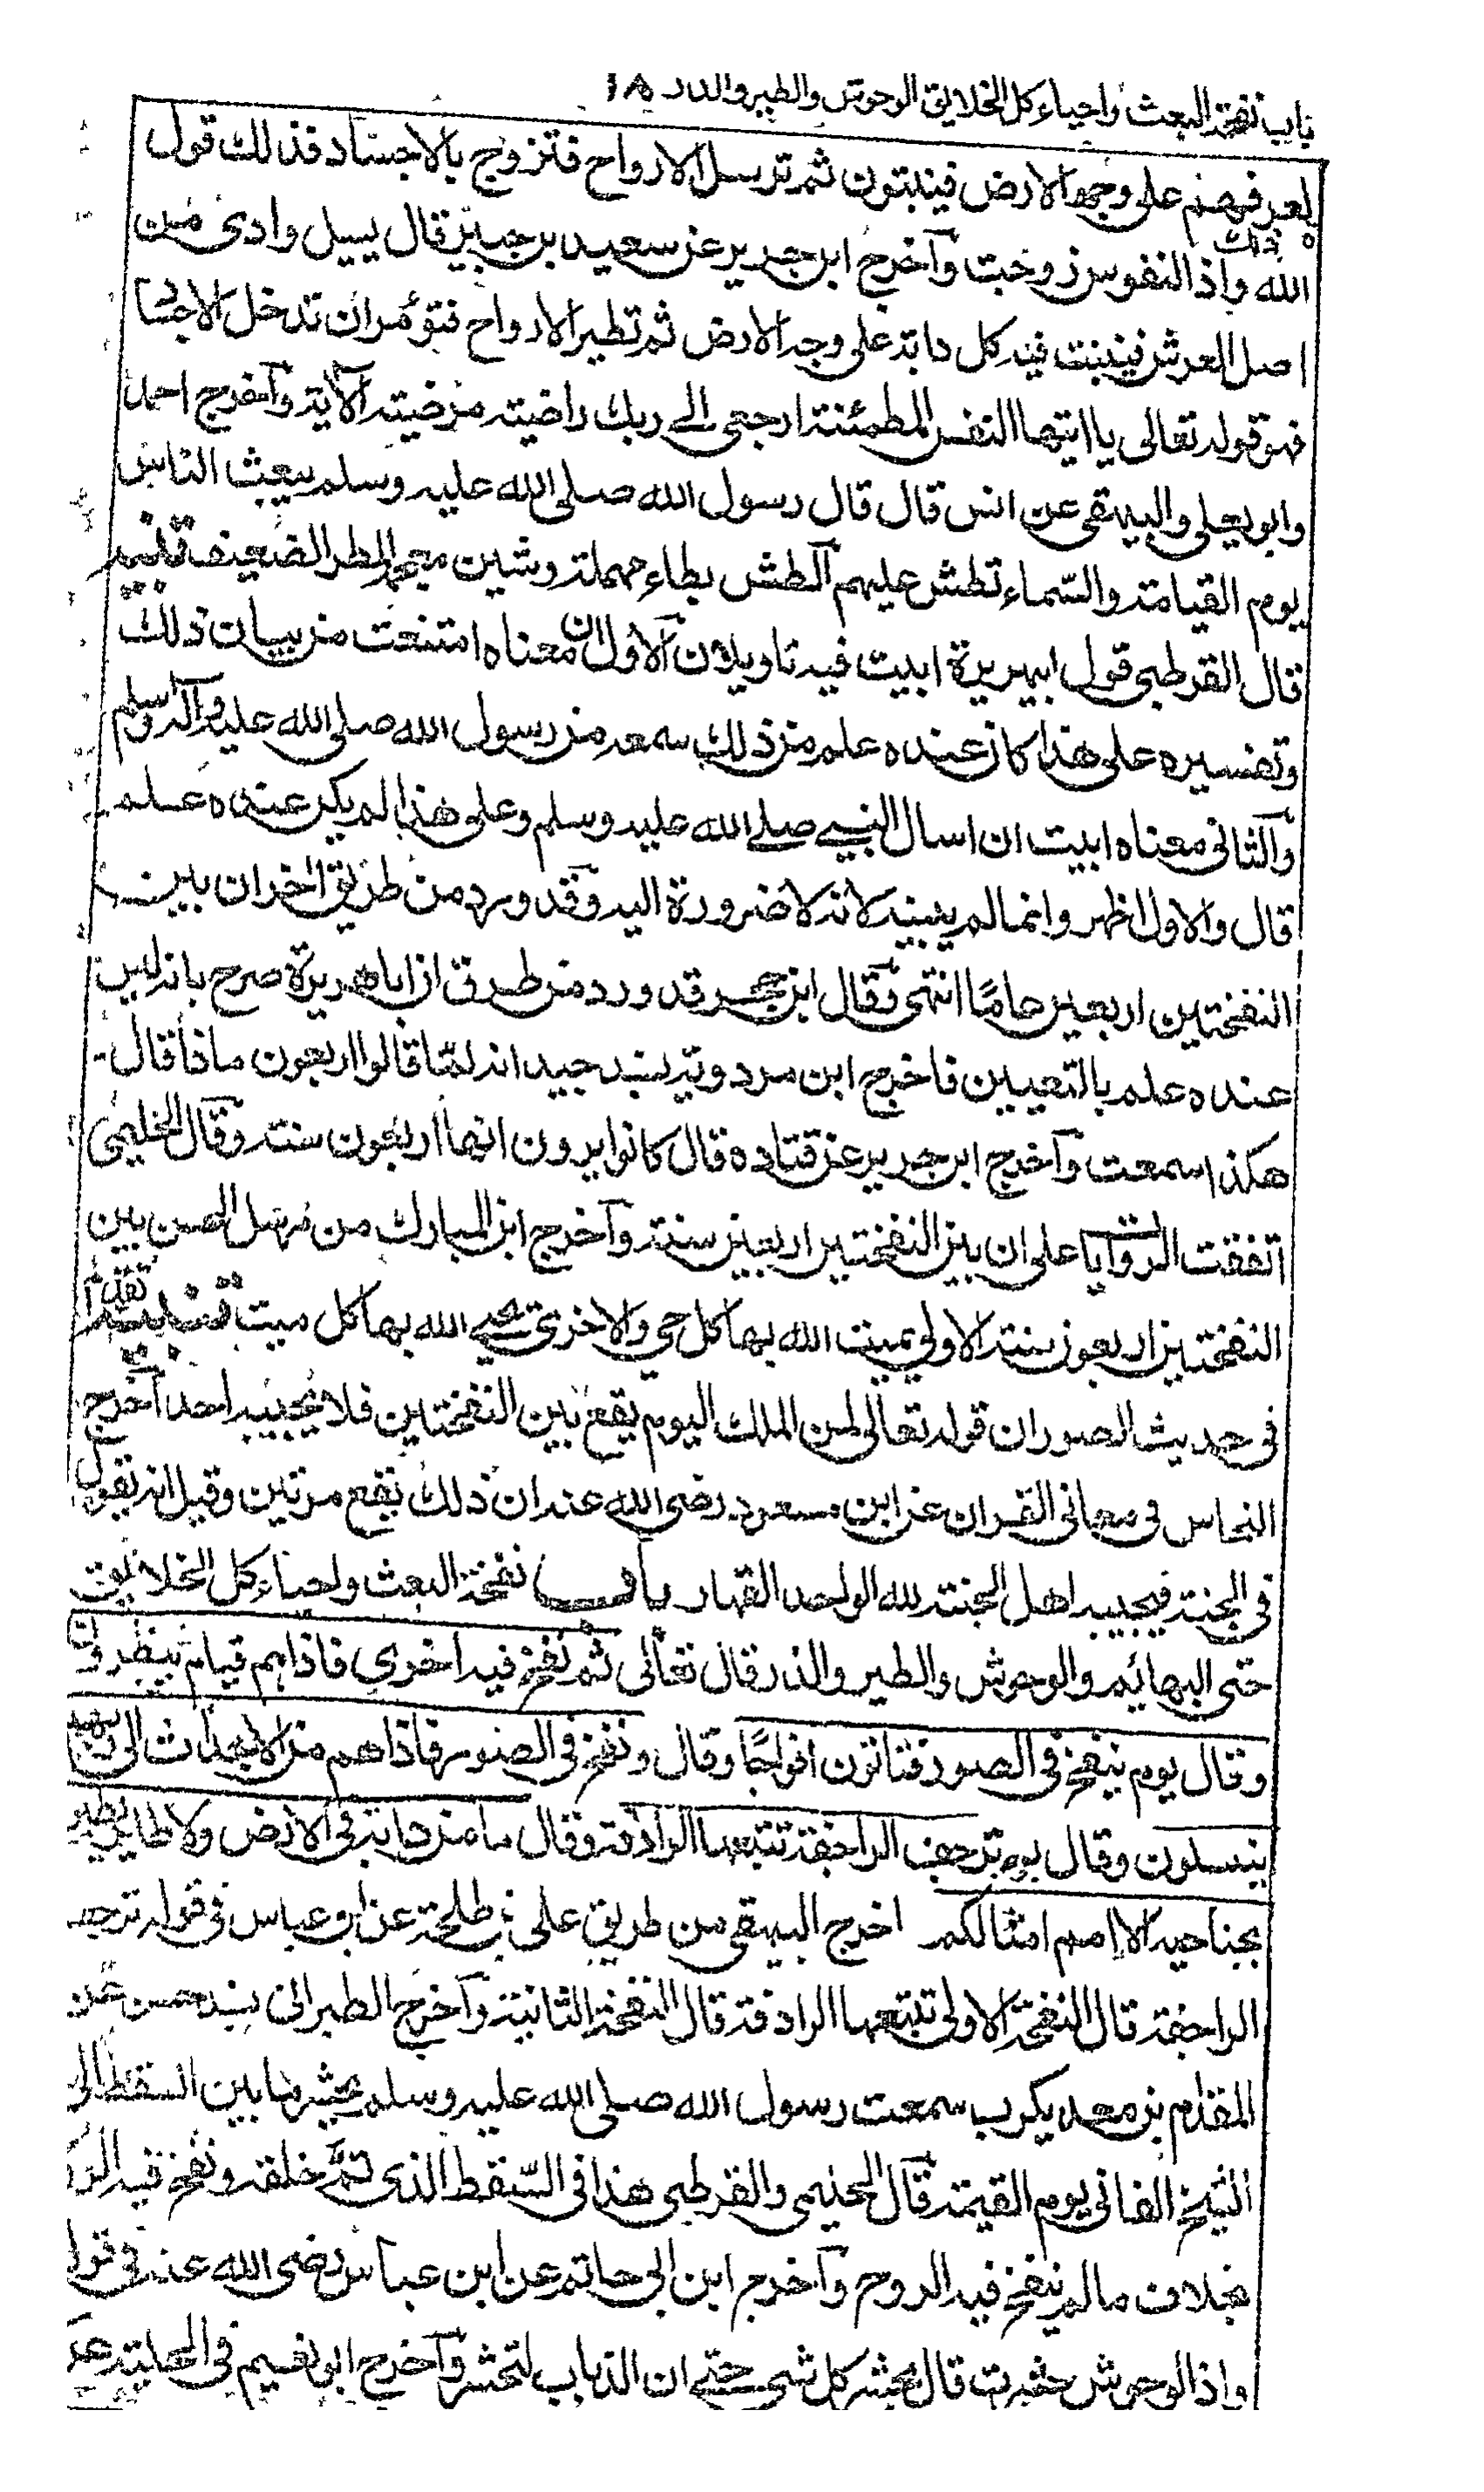 باب نفخة البعث واحياء كل الخلايق الوحوش والطير والذر ١٨
يعرفهم على وجه الارض فينبتون ثم ترسل الارواح فتزوج بالاجساد فذلك قول
ذلك
الله واذا النفوس زوجت وآخرج ابن جرير عن سعيد بن جبير قال يسيل وادى من
اصل العرش فينبت فيه كل دابة على وجه الارض ثم تطير الارواح فتؤمر ان تدخل الاجساد
فهو قوله تعالى يا ايتها النفس المطمئنة ارجعى الى ربك راضية مرضية الآية وآخرج احمد
وابو يعلى والبيهقى عن انس قال قال رسول الله صلى الله عليه وسلم يبعث الناس
يوم القيامة والسّماء تطش عليهم آلطش بطاء مهملة وشين معجمة المطر الضعيف تنبيه
قال القرطبى قول ابيهريرة ابيت فيه تاويلان آلاول ان معناه امتنعت من بيان ذلك
وتفسيره على هذا كان عنده علم من ذلك سمعه من رسول الله صلى الله عليه وآله وسلم
وآلثانى معناه ابيت ان اسال النبي صلى الله عليه وسلم وعلى هذا لم يكن عنده علم
قال والاول اظهر وانما لم يبينه لانه لا ضرورة اليه وقد ورد من طريق اخر ان بين
النفختين اربعين عامًا انتهى وقال ابن حجر قد ورد من طرق ان اباهريرة صرح بانه ليس
عنده علم بالتعيين فاخرج ابن مردوية بسند جيد انه لمّا قالوا اربعون ماذا قال
هكذا سمعت وآخرج ابن جرير عن قتاده قال كانوا يرون انها اربعون سنة وقال الحليمى
اتفقت الروايات على ان بين النفختين اربعين سنة وآخرج ابن المبارك من مرسل الحسن بين
النفختين اربعون سنة الاولى يميت الله بها كل حي والاخرى يحيي الله بها كل ميت تنبيه تقدم
فى حديث الصور ان قوله تعالى لمن الملك اليوم يقع بين النفختين فلا يجيبه احد آخرج
النحاس فى معانى القران عن ابن مسعود رضى الله عنه ان ذلك يقع مرتين وقيل انه يقول
فى الجنة فيجيبه اهل الجنة لله الواحد القهار باب نفخة البعث واحياء كل الخلايق
حتى البهائم والوحوش والطير والذر قال تعالى ثم نفخ فيه اخرى فاذا هم قيام ينظرون
وقال يوم ينفخ فى الصور فتاتون افواجًا وقال ونفخ فى الصور فاذا هم من الاجداث الى ربهم
ينسلون وقال يوم ترجف الراجفة تتبعها الرادفة وقال ما من دابة فى الارض ولا طاير يطير
بجناحيه الا امم امثالكم اخرج البيهقى من طريق على بن طلحة عن ابن عباس فى قوله ترجف
الراجفة قال النفخة الاولى تتبعها الرادفة قال النفخة الثانية وآخرج الطبرانى بسند حسن عن
المقدام بن معد يكرب سمعت رسول الله صلى الله عليه وسلم يحشر ما بين السقط الى
الشيخ الفانى يوم القيمة قال الحليمى والقرطبى هذا فى السّقط الذى تمّ خلقه ونفخ فيه الروح
بخلاف ما لم ينفخ فيه الروح وآخرج ابن ابى حاتم عن ابن عباس رضى الله عنه فى قوله
واذا الوحوش حشرت قال يحشر كل شى حتى ان الذباب لتحشر وآخرج ابو نعيم فى الحلية عن